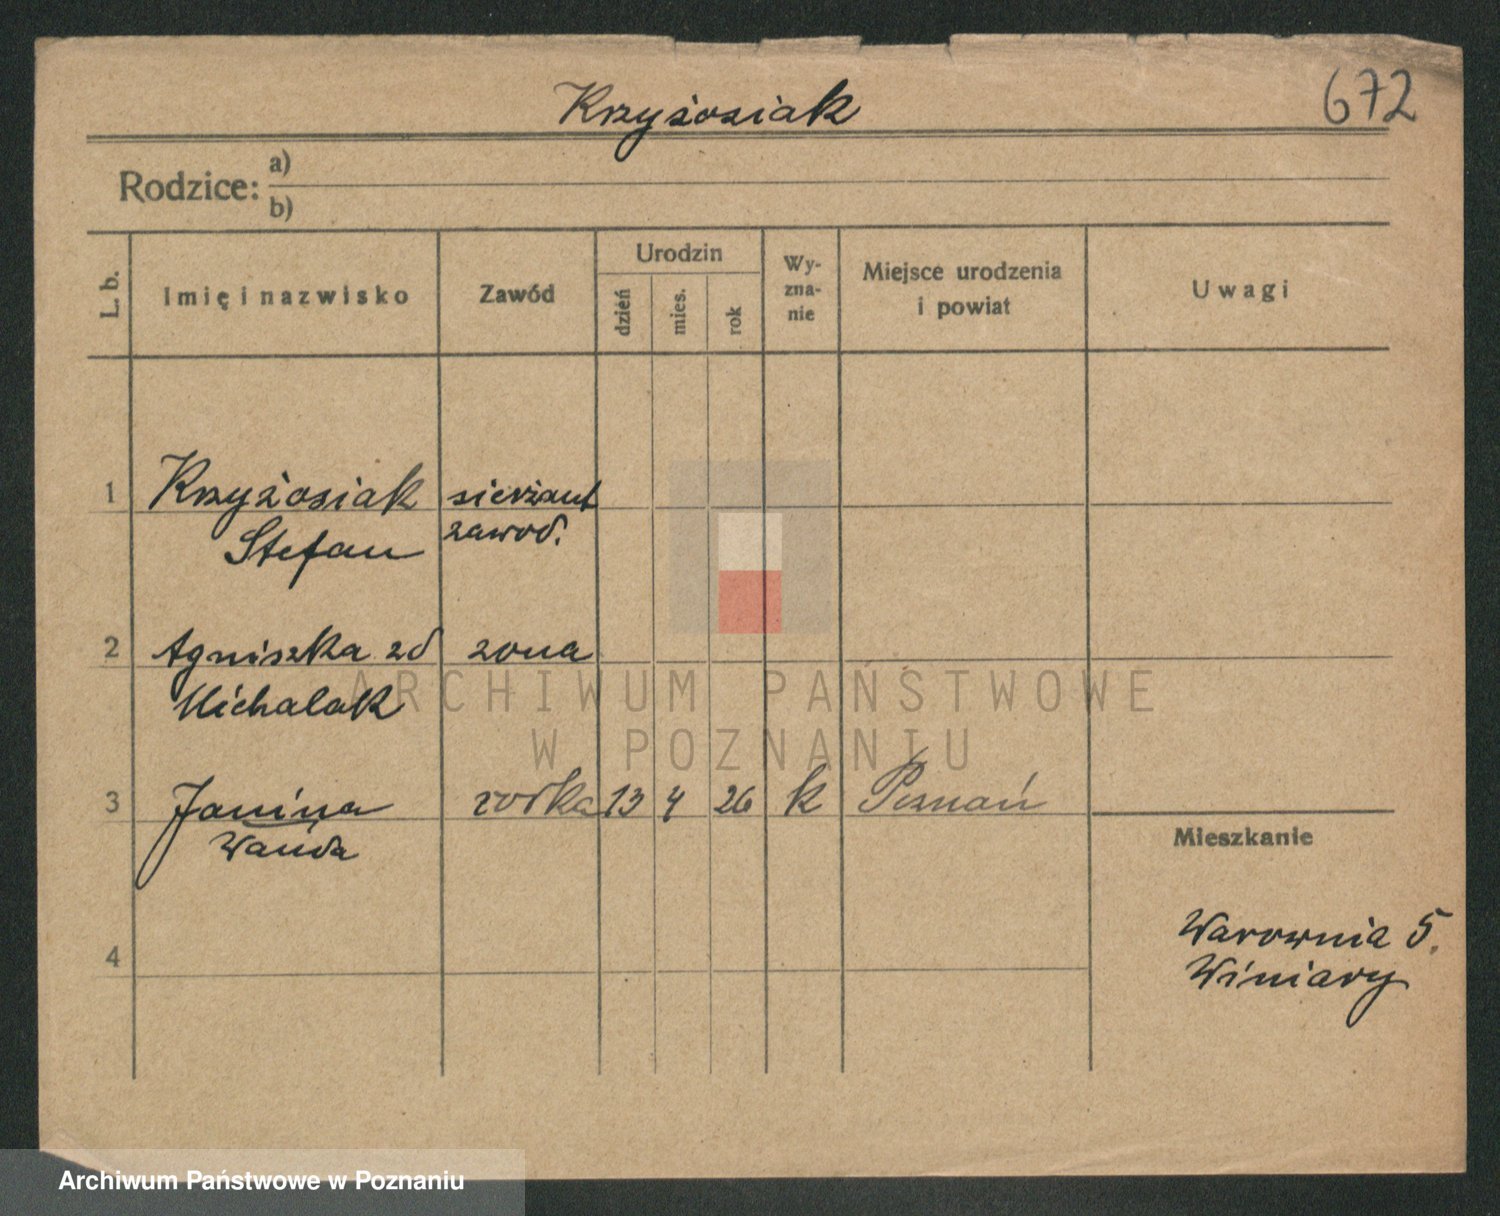 Krzyżosiak
672
Rodzice: a)
b)
L. b.
Imię i nazwisko
Zawód
Urodzin
dzień
mies.
rok
Wy-
zna-
nie
Miejsce urodzenia
i powiat
Uwagi
1 Krzyżosiak sierżant
Stefan zawod.
2 Agniszka zd zona
Michalak
3 Janina 13 4 26 k Poznań
Wanda
Mieszkanie
4
Warownia 5.
Winiary
ARCHIWUM PAŃSTWOWE
W POZNANIU
Archiwum Państwowe w Poznaniu